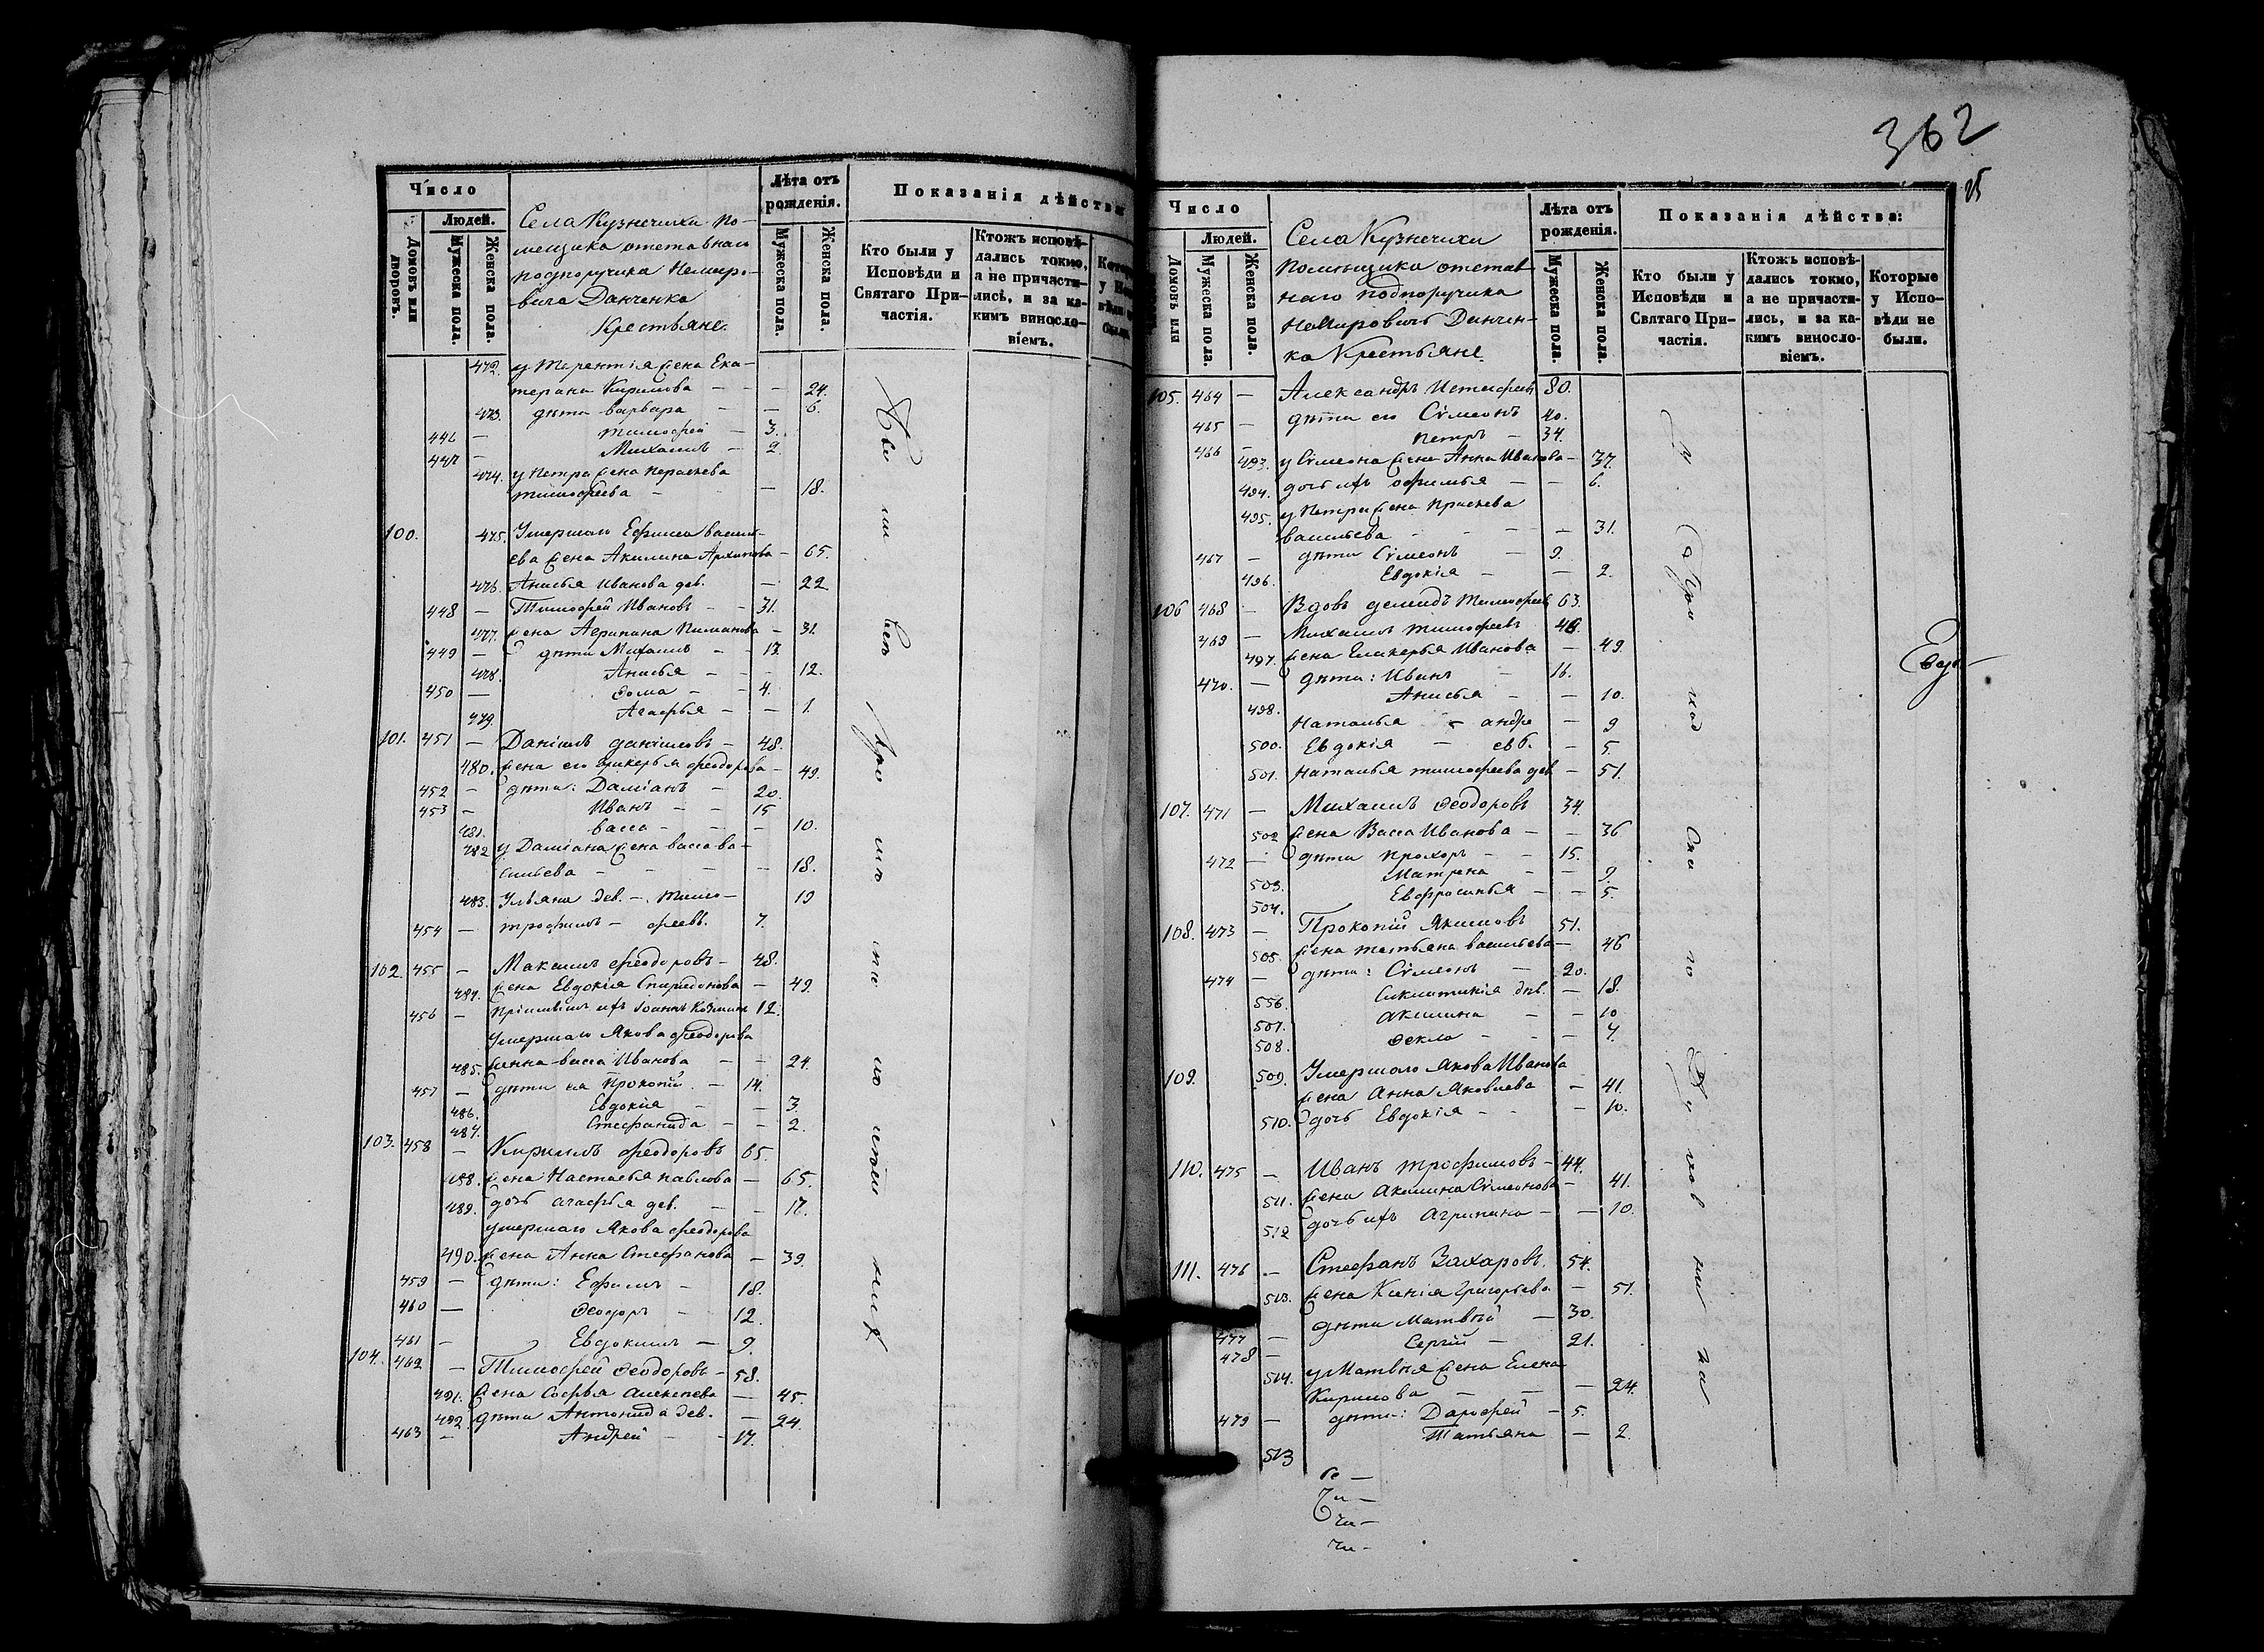 Число
Людей.
Домовъ или дворовъ.
Мужеска пола.
Женска пола.
Села Кузнечихи По-
мещика отставнаго
подпоручика Немиро-
вича Данченка
Крестьяне.
Лѣта отъ рожденія.
Мужеска пола.
Женска пола.
Показанія дѣйства
Кто были у Исповѣди и Святаго При-частія.
Ктожъ исповѣ-дались токмо, а не причасти-лись, и за ка-кимъ виносло-віемъ.
472. у Терентія жена Ека-
терина Кирилова – – – 24.
473. дѣти варвара – – 6.
446 – тимофей – 3.
447 – Михаилъ – 2.
474. у Петра жена Параскева
тимофеева – – 18.
100. 475. Умершаго Ефима Васил-
ева жена Акилина Архипова – 65.
476. Анисья Иванова дев. – 22
448 – Тимофей Ивановъ – – 31.
477. жена Агрипина Пиманова – 31.
449 – дѣти Михаилъ – – 17.
478. Анисья – – – 12.
450 – Ѳома – – 4.
479. Агафья – – 1.
101. 451 – Даніилъ даніиловъ – 48.
480. жена его Гликерья Феодорова – 49.
452 – дѣти: Даміанъ – 20.
453 – Иванъ – – 15
481. васса – – – 10.
482 у Даміана жена васса ва-
сильева – – – – 18.
483. Ульяна дев. – Тимо- 19
454 – трофимъ – феевъ. 7.
102. 455 – Максимъ Феодоровъ – 48.
484. жена Евдокія Спиридонова – 49.
456 – Пріимышъ ихъ Іоаннъ Козминъ 12.
Умершаго Якова Феодорова
485. жена васса Иванова – – 24.
457 – дѣти ея Прокопій – 14.
486. Евдокія – – 3.
487. Стефанида – – 2.
103. 458 – Кирилъ Феодоровъ 65.
488. жена Настасья павлова – 65.
489. дочь агафья дев. – – 17.
умершаго Якова Феодорова
490. жена Анна Стефанова – 39.
459 – дѣти: Ефимъ – 18.
460 – Ѳеодоръ – 12.
461 – Евдокимъ – 9.
104. 462 – Тимофей Ѳеодоровъ – 58.
491. жена Софья алексеева – 45.
492. дѣти Антонида дев. – 24.
463 – Андрей – – 17.
362
Число
Людей.
Домовъ или
Мужеска пола.
Женска пола.
Села Кузнечихи
Помѣщика отстав-
наго подпоручика
Немировичъ Данчен-
ка Крестьяне.
Лѣта отъ рожденія.
Мужеска пола.
Женска пола.
Показанія дѣйства:
Кто были у Исповѣди и Святаго При-частія.
Ктожъ исповѣ-дались токмо, а не причасти-лись, и за ка-кимъ виносло-віемъ.
Которые у Испо-вѣди не были.
105. 464 – Александръ 80.
465 – дѣти его Сѵмеонъ 40.
466 – Петръ – 34.
493. у Сѵмеона жена Анна Иванова – 37.
494. дочь ихъ Офимья – – 6.
495. у Петра жена Праскева
васильева – – – 31.
467 – дѣти Сѵмеонъ – 9.
496. Евдокія – – 2.
106 468 – Вдовъ демидъ Тимофеевъ 63.
469 – Михаилъ тимофеевъ 48.
497. жена Гликерья Иванова – 49.
470. – дѣти: Иванъ – 16.
498. Анисья – – 10.
Наталья – андре – 9
500. Евдокія – евб. – 5.
501. Наталья тимофеева дев – 51.
107. 471 – Михаилъ Ѳеодоровъ 34.
502 жена Васса Иванова – – 36
472 – дѣти Прохоръ – – 15.
503. Матрена – – 9.
504. Евфросинья – – 5.
108. 473 – Прокопій Якимовъ 51.
505. жена татьяна васильева – 46
474 – дѣти: Сѵмеонъ – 20.
556. Сиклитикія дѣв. – 18.
507. акилина – – 10
508. Ѳекла – – 7.
109. 509. Умершаго Якова Иванова
жена Анна Яковлева – 41.
510. дочь Евдокія – – – 10.
110. 475 – Иванъ трофимовъ – 44.
511. жена Акилина Сѵмеонова – 41.
512 дочь ихъ Агрипина – – 10.
111. 476 – Стефанъ Захаровъ. 54.
513. жена Ксенія Григорьева – 51.
477 – дѣти Матвѣй – 30.
478 – Сергій – 21.
514. у Матвѣя жена Елена
Кирилова – – – 24.
479 – дѣти: Дорофей – 5.
513 Татьяна – 2.